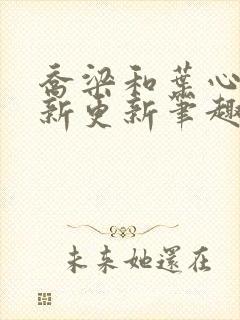 乔梁和叶心
新更新笔趣
未来她還在